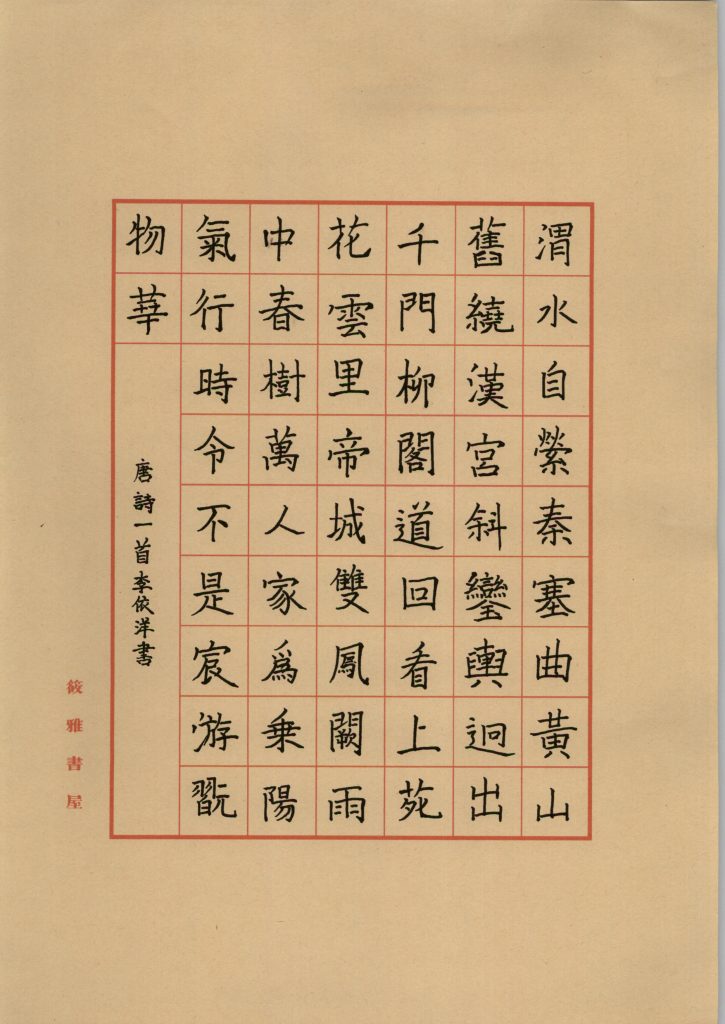 渭水自縈秦塞曲黃山
舊繞漢宮斜鑾輿迥出
千門柳閣道回看上苑
花雲里帝城雙鳳闕雨
中春樹萬人家爲乗陽
氣行時令不是宸游翫
物華
唐詩一首李依洋書
筱雅書屋